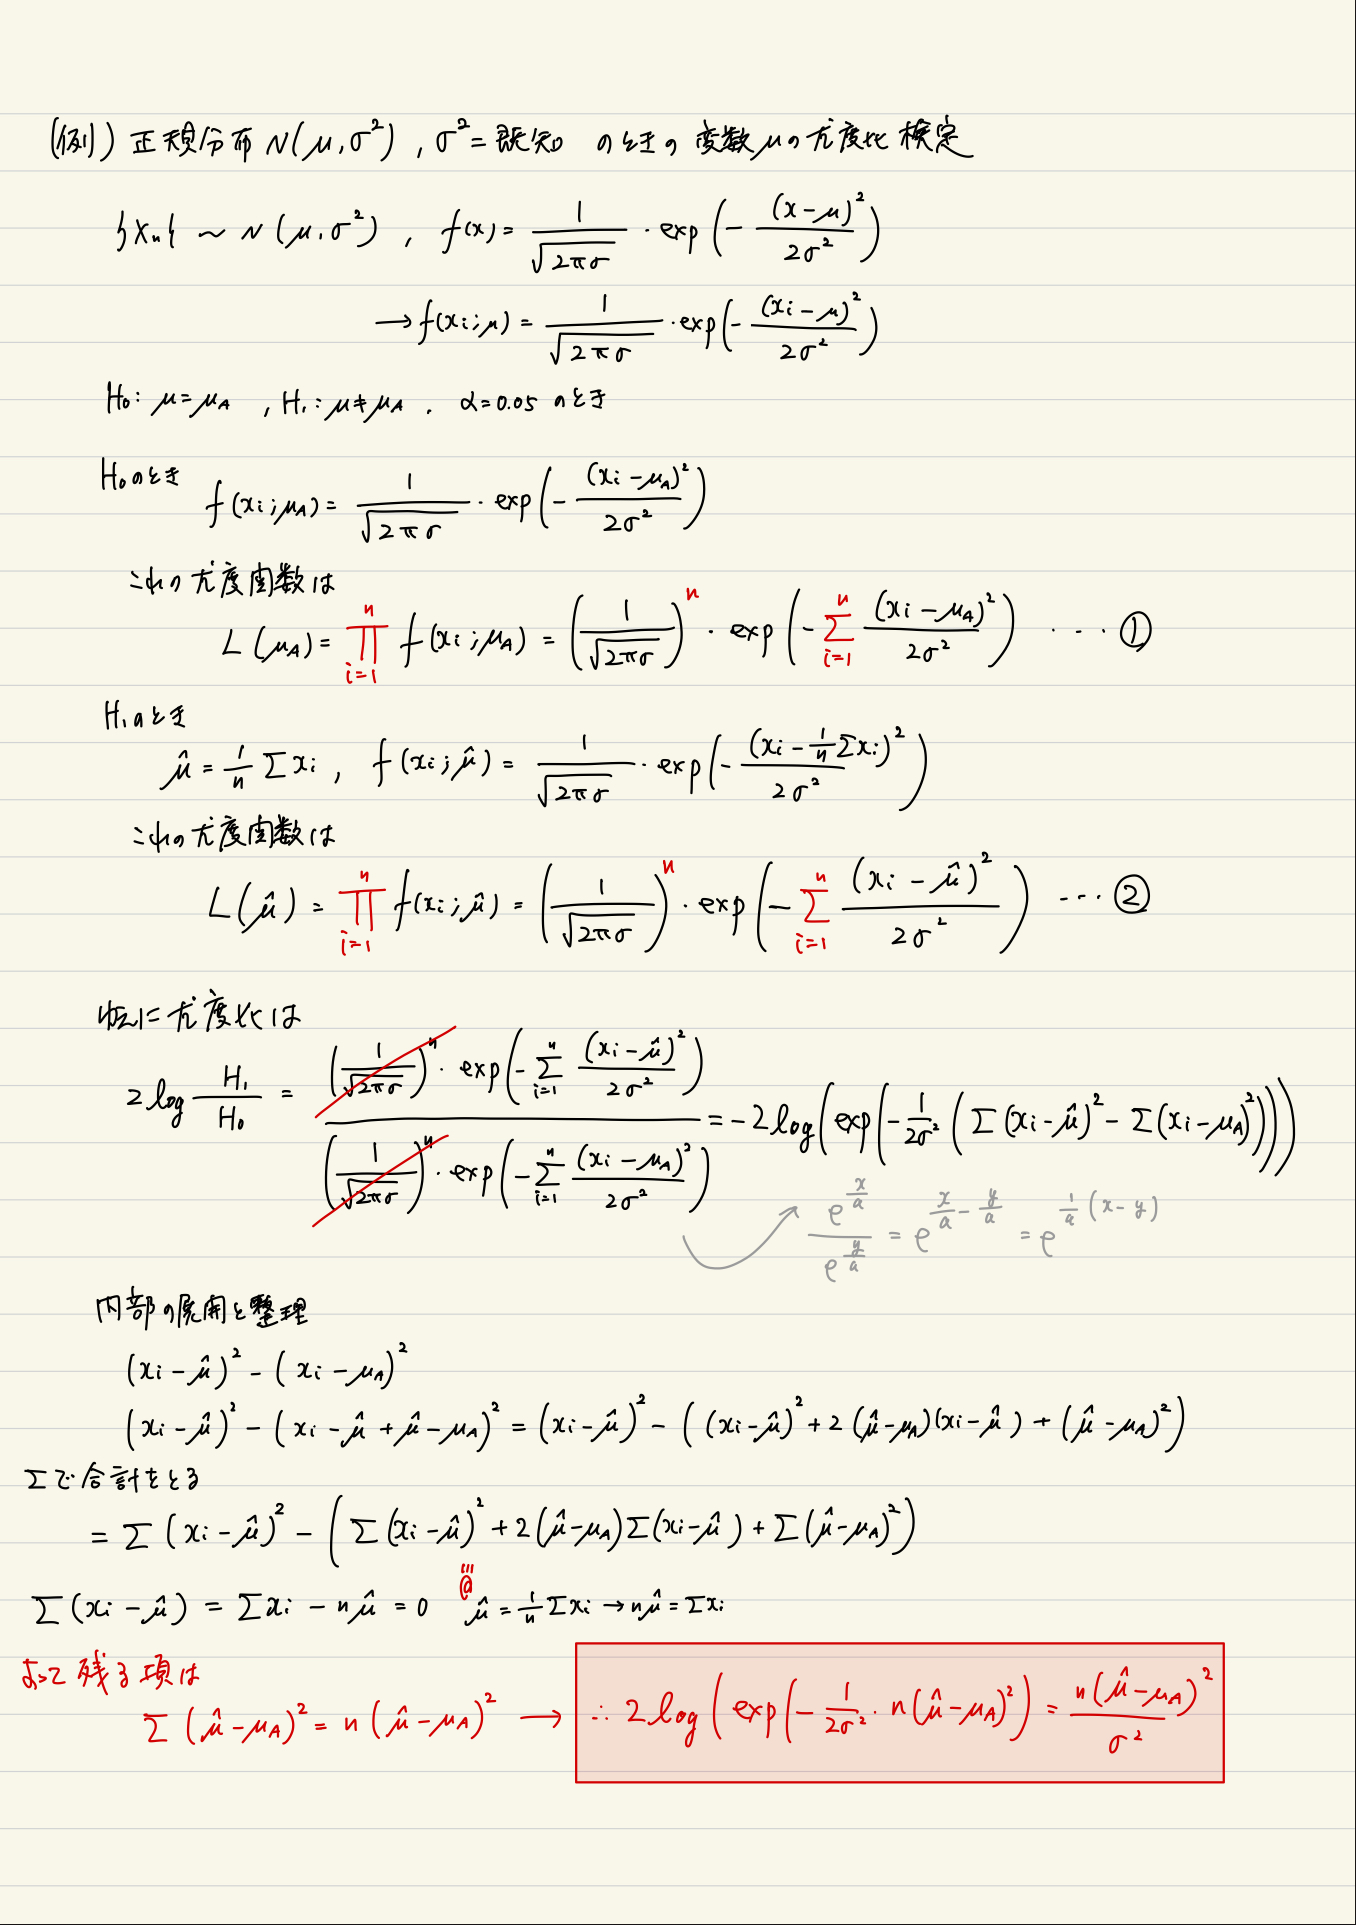 (例) 正規分布 N(μ, σ²) , σ² = 既知 のときの 変数 μの尤度比検定
{Xn} ~ N(μ, σ²) , f(x) = 1/√2πσ · exp(-(x-μ)²/2σ²)
→ f(xi;μ) = 1/√2πσ · exp(-(xi-μ)²/2σ²)
H₀: μ=μA , H₁: μ≠μA . α=0.05 のとき
H₀のとき f(xi;μA) = 1/√2πσ · exp(-(xi-μA)²/2σ²)
これの尤度関数は
L(μA) = ∏_{i=1}^{n} f(xi;μA) = (1/√2πσ)ⁿ · exp(-∑_{i=1}^{n} (xi-μA)²/2σ²) ··· ①
H₁のとき
μ̂ = 1/n ∑xi , f(xi;μ̂) = 1/√2πσ · exp(-(xi - 1/n ∑xi)²/2σ²)
これの尤度関数は
L(μ̂) = ∏_{i=1}^{n} f(xi;μ̂) = (1/√2πσ)ⁿ · exp(-∑_{i=1}^{n} (xi-μ̂)²/2σ²) ··· ②
故に尤度比は
2log H₁/H₀ = (1/√2πσ)ⁿ · exp(-∑_{i=1}^{n} (xi-μ̂)²/2σ²) / (1/√2πσ)ⁿ · exp(-∑_{i=1}^{n} (xi-μA)²/2σ²) = -2log(exp(-1/2σ² (∑(xi-μ̂)² - ∑(xi-μA)²)))
e^{x/a} / e^{y/a} = e^{x/a - y/a} = e^{1/a (x-y)}
内部の展開と整理
(xi-μ̂)² - (xi-μA)²
(xi-μ̂)² - (xi-μ̂+μ̂-μA)² = (xi-μ̂)² - ((xi-μ̂)² + 2(μ̂-μA)(xi-μ̂) + (μ̂-μA)²)
∑で合計をとる
= ∑(xi-μ̂)² - (∑(xi-μ̂)² + 2(μ̂-μA)∑(xi-μ̂) + ∑(μ̂-μA)²)
∑(xi-μ̂) = ∑xi - nμ̂ = 0 @ μ̂ = 1/n ∑xi → nμ̂ = ∑xi
よって残る項は
∑(μ̂-μA)² = n(μ̂-μA)² → ∴ 2log(exp(-1/2σ² · n(μ̂-μA)²)) = n(μ̂-μA)²/σ²